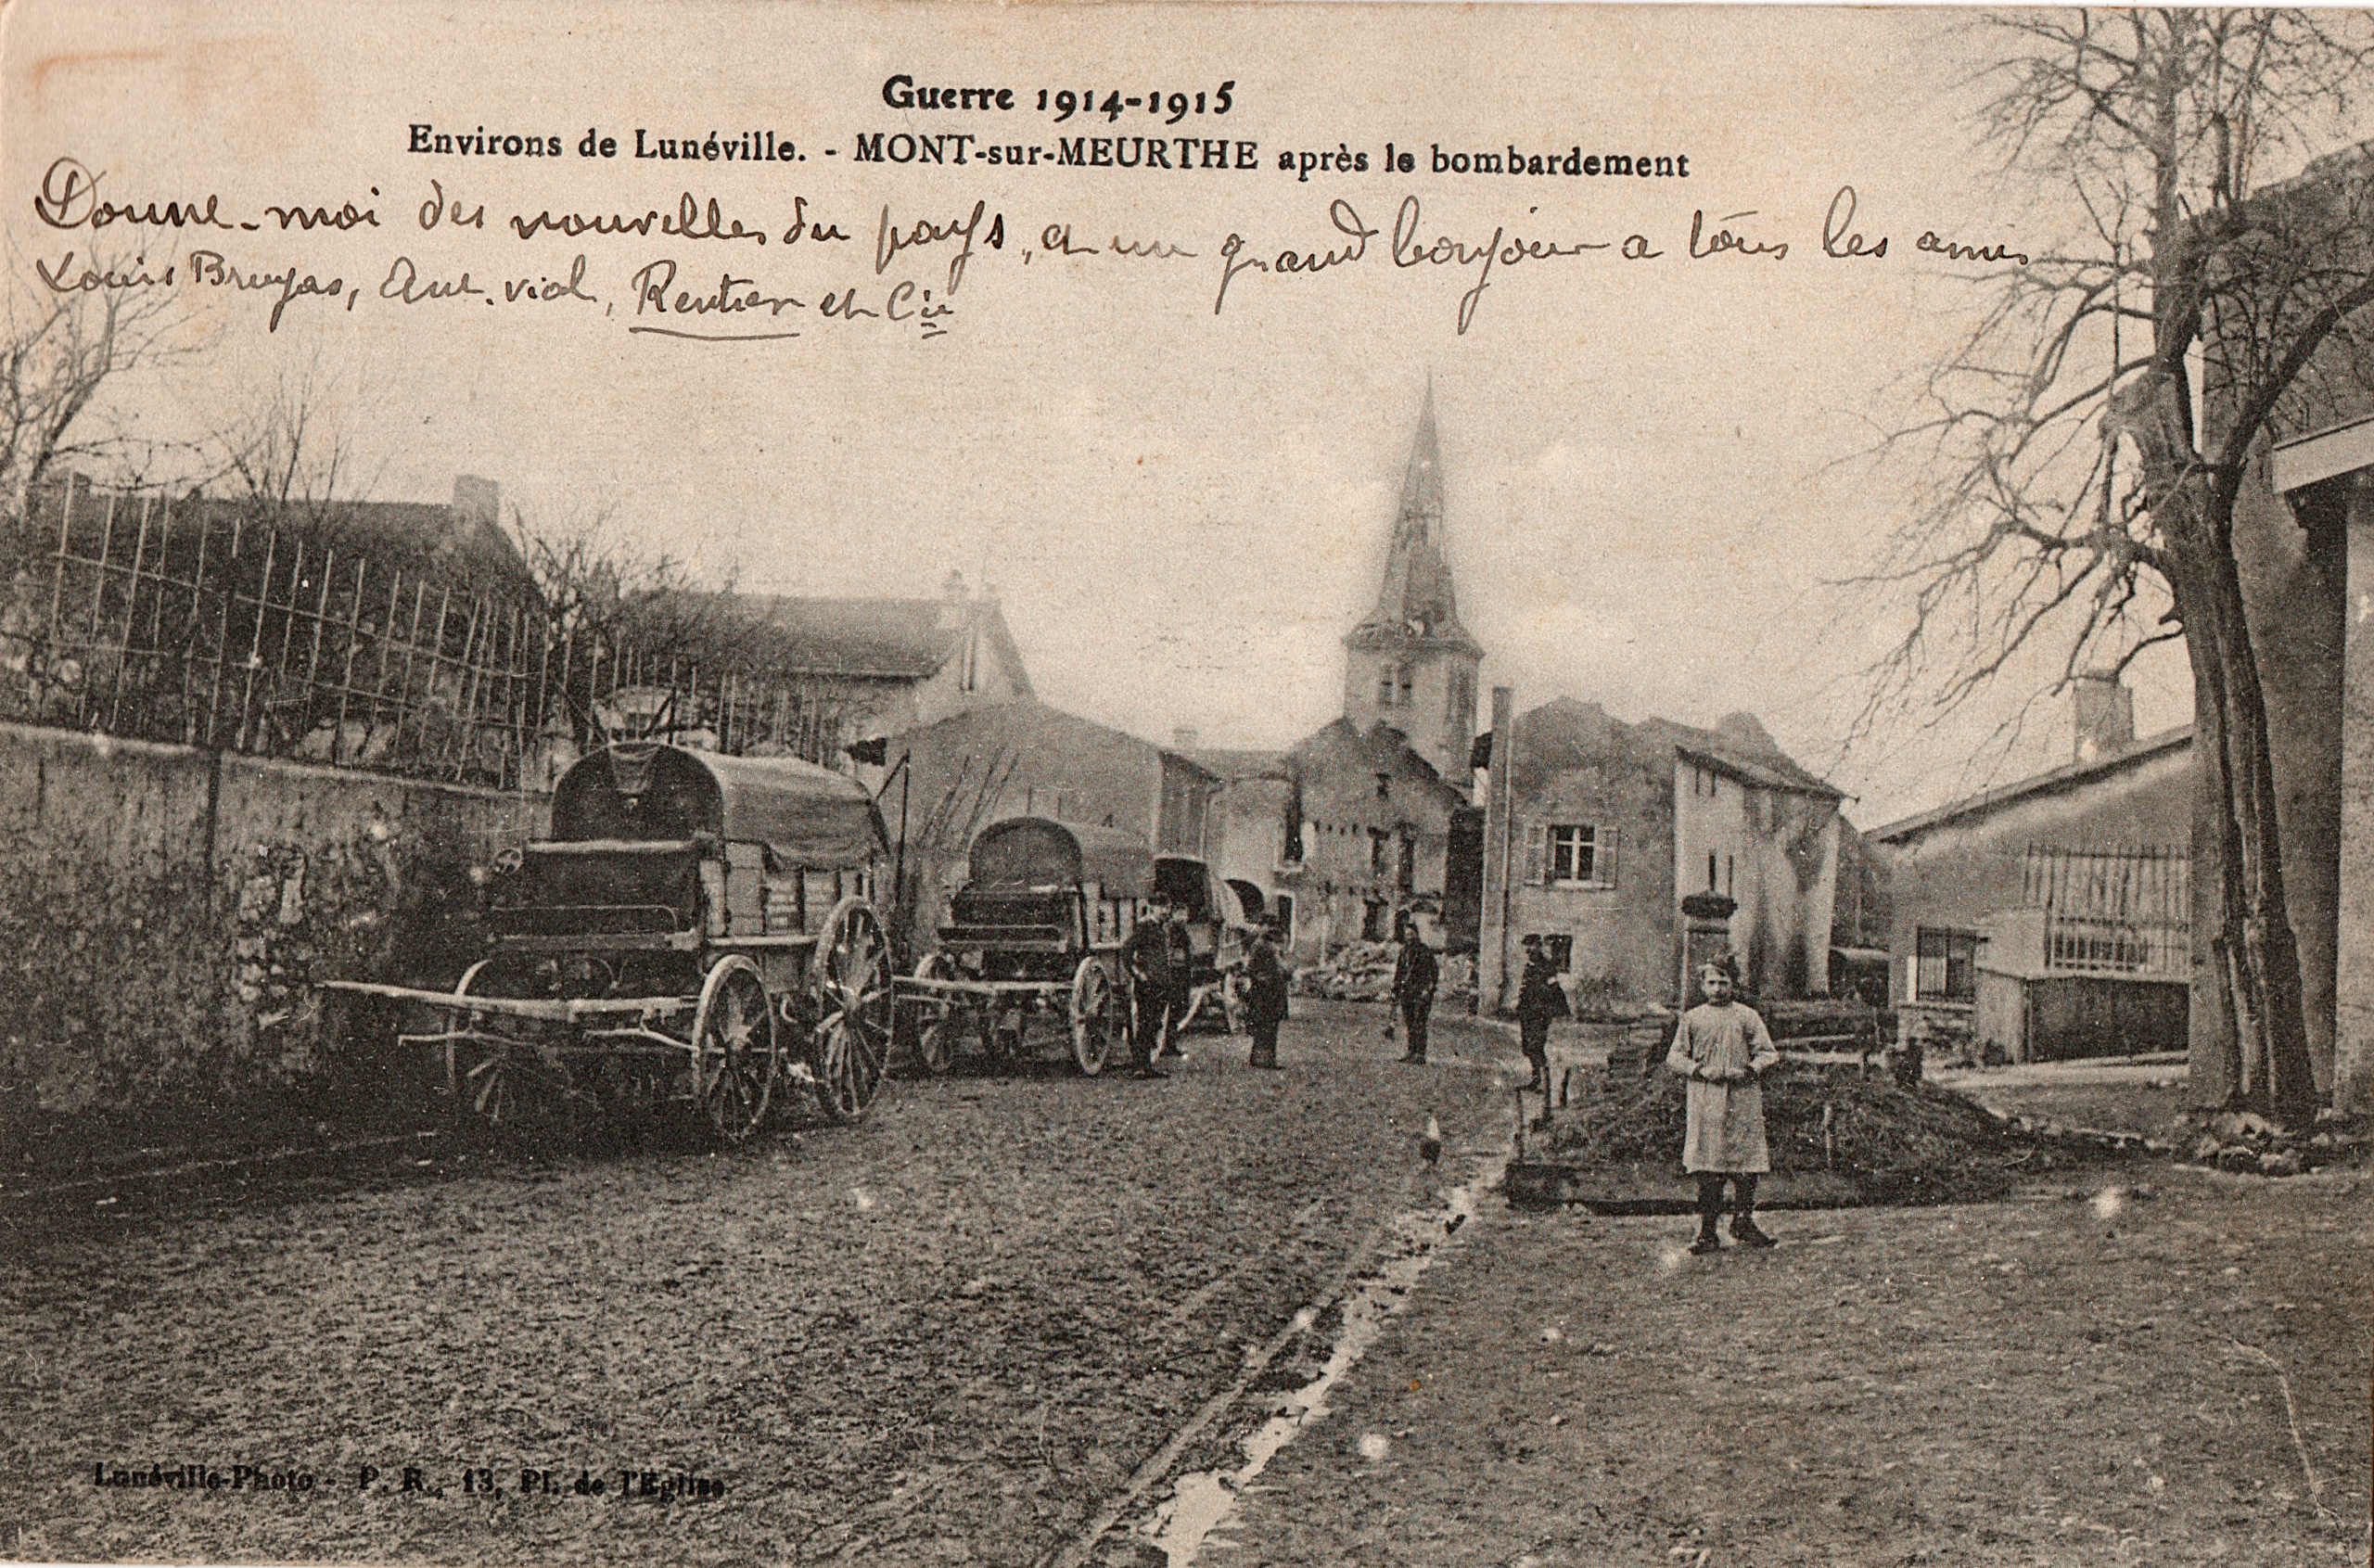 Guerre 1914-1915
Environs de Lunéville. - MONT-sur-MEURTHE après le bombardement
Donne-moi des nouvelles du pays, et un grand bonjour a tous les amis
Louis Bruyas, Ant. vial, Rentier et Cie
Lunéville-Photo - P. R., 13, Pl. de l'Eglise